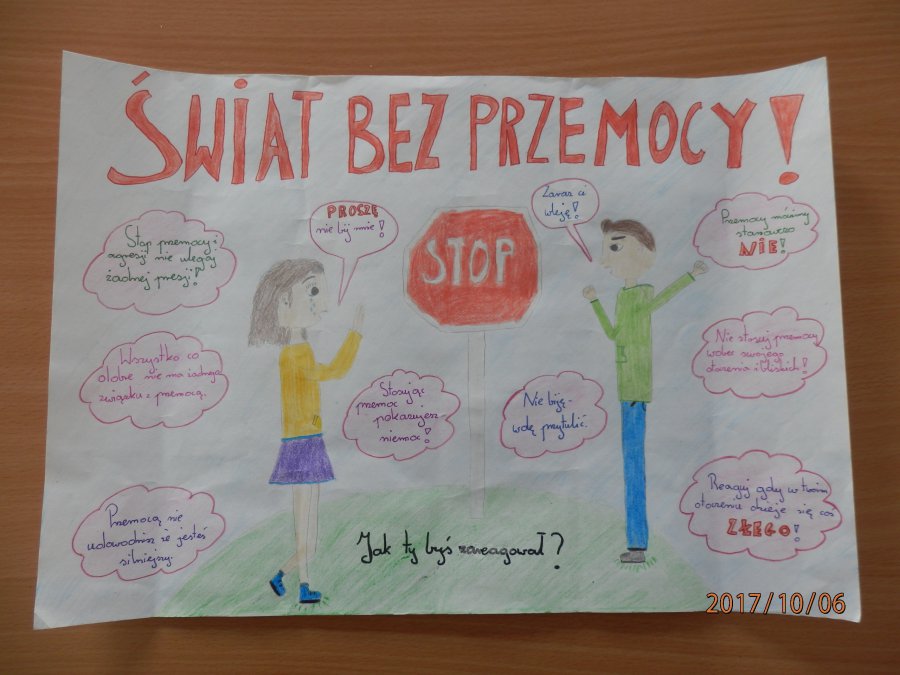 ŚWIAT BEZ PRZEMOCY!
PROSZĘ
nie bij mnie!
Zaraz ci
wleję!
STOP
Stop przemocy i
agresji nie ulegaj
żadnej presji!
Przemocy mówimy
stanowczo
NIE!
Wszystko co
dobre nie ma żadnego
związku z przemocą.
Stosując
przemoc
pokazujesz
niemoc!
Nie biję -
wolę przytulić.
Nie stosuj przemocy
wobec swojego
otoczenia i bliskich!
Przemocą nie
udowodnisz że jesteś
silniejszy.
Reaguj gdy w twoim
otoczeniu dzieje się coś
ZŁEGO!
Jak ty byś zareagował?
2017/10/06